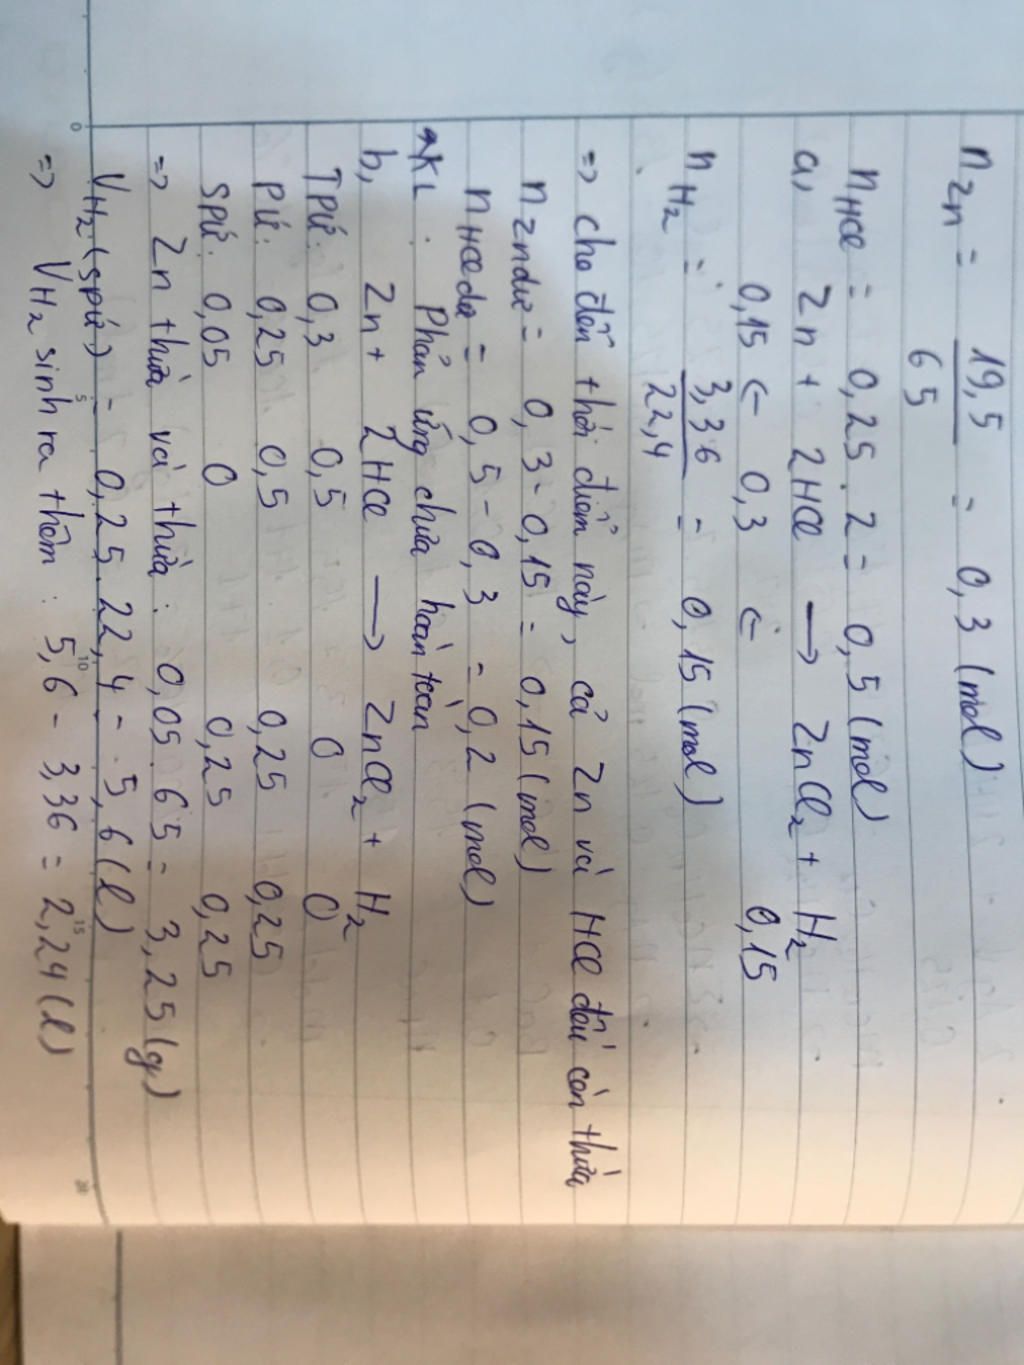 n Zn = 19,5 / 65 = 0,3 (mol)
n HCl = 0,25 . 2 = 0,5 (mol)
a, Zn + 2HCl → ZnCl₂ + H₂
0,15 ← 0,3 ← 0,15
n H₂ = 3,36 / 22,4 = 0,15 (mol)
=> cho đến thời điểm này, cả Zn và HCl đều còn thừa
n Zn dư = 0,3 - 0,15 = 0,15 (mol)
n HCl dư = 0,5 - 0,3 = 0,2 (mol)
* KL : Phản ứng chưa hoàn toàn
b, Zn + 2HCl → ZnCl₂ + H₂
TPứ: 0,3 0,5 0 0
Pứ: 0,25 0,5 0,25 0,25
SPứ: 0,05 0 0,25 0,25
=> Zn thừa và thừa : 0,05 . 65 = 3,25 (g)
V H₂ (spứ) = 0,25 . 22,4 = 5,6 (l)
=> V H₂ sinh ra thêm : 5,6 - 3,36 = 2,24 (l)
0 5 10 15 20